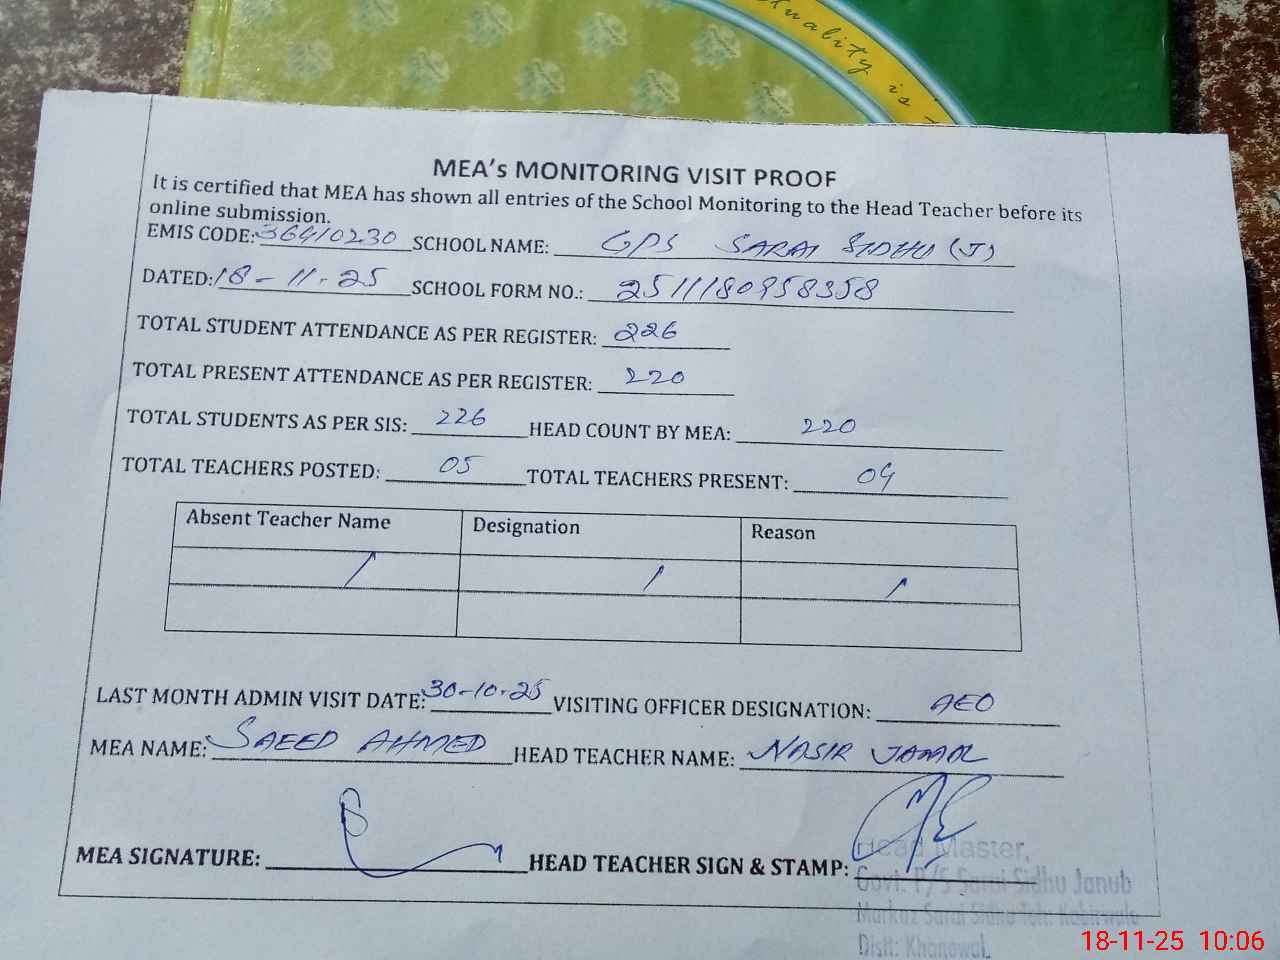 uality is
MEA's MONITORING VISIT PROOF
It is certified that MEA has shown all entries of the School Monitoring to the Head Teacher before its
online submission.
EMIS CODE: 36410230 SCHOOL NAME: GPS SARAI SIDHU (J)
DATED: 18-11-25 SCHOOL FORM NO.: 2511180958358
TOTAL STUDENT ATTENDANCE AS PER REGISTER: 226
TOTAL PRESENT ATTENDANCE AS PER REGISTER: 220
TOTAL STUDENTS AS PER SIS: 226 HEAD COUNT BY MEA: 220
TOTAL TEACHERS POSTED: 05 TOTAL TEACHERS PRESENT: 04
Absent Teacher Name Designation Reason
LAST MONTH ADMIN VISIT DATE: 30-10-25 VISITING OFFICER DESIGNATION: AEO
MEA NAME: SAEED AHMED HEAD TEACHER NAME: NASIR JAMAL
MEA SIGNATURE: HEAD TEACHER SIGN & STAMP:
Head Master,
Govt: P/S Sarai Sidhu Janub
Markaz Sarai Sidhu Teh: Kabirwala
Distt: Khanewal.
18-11-25 10:06